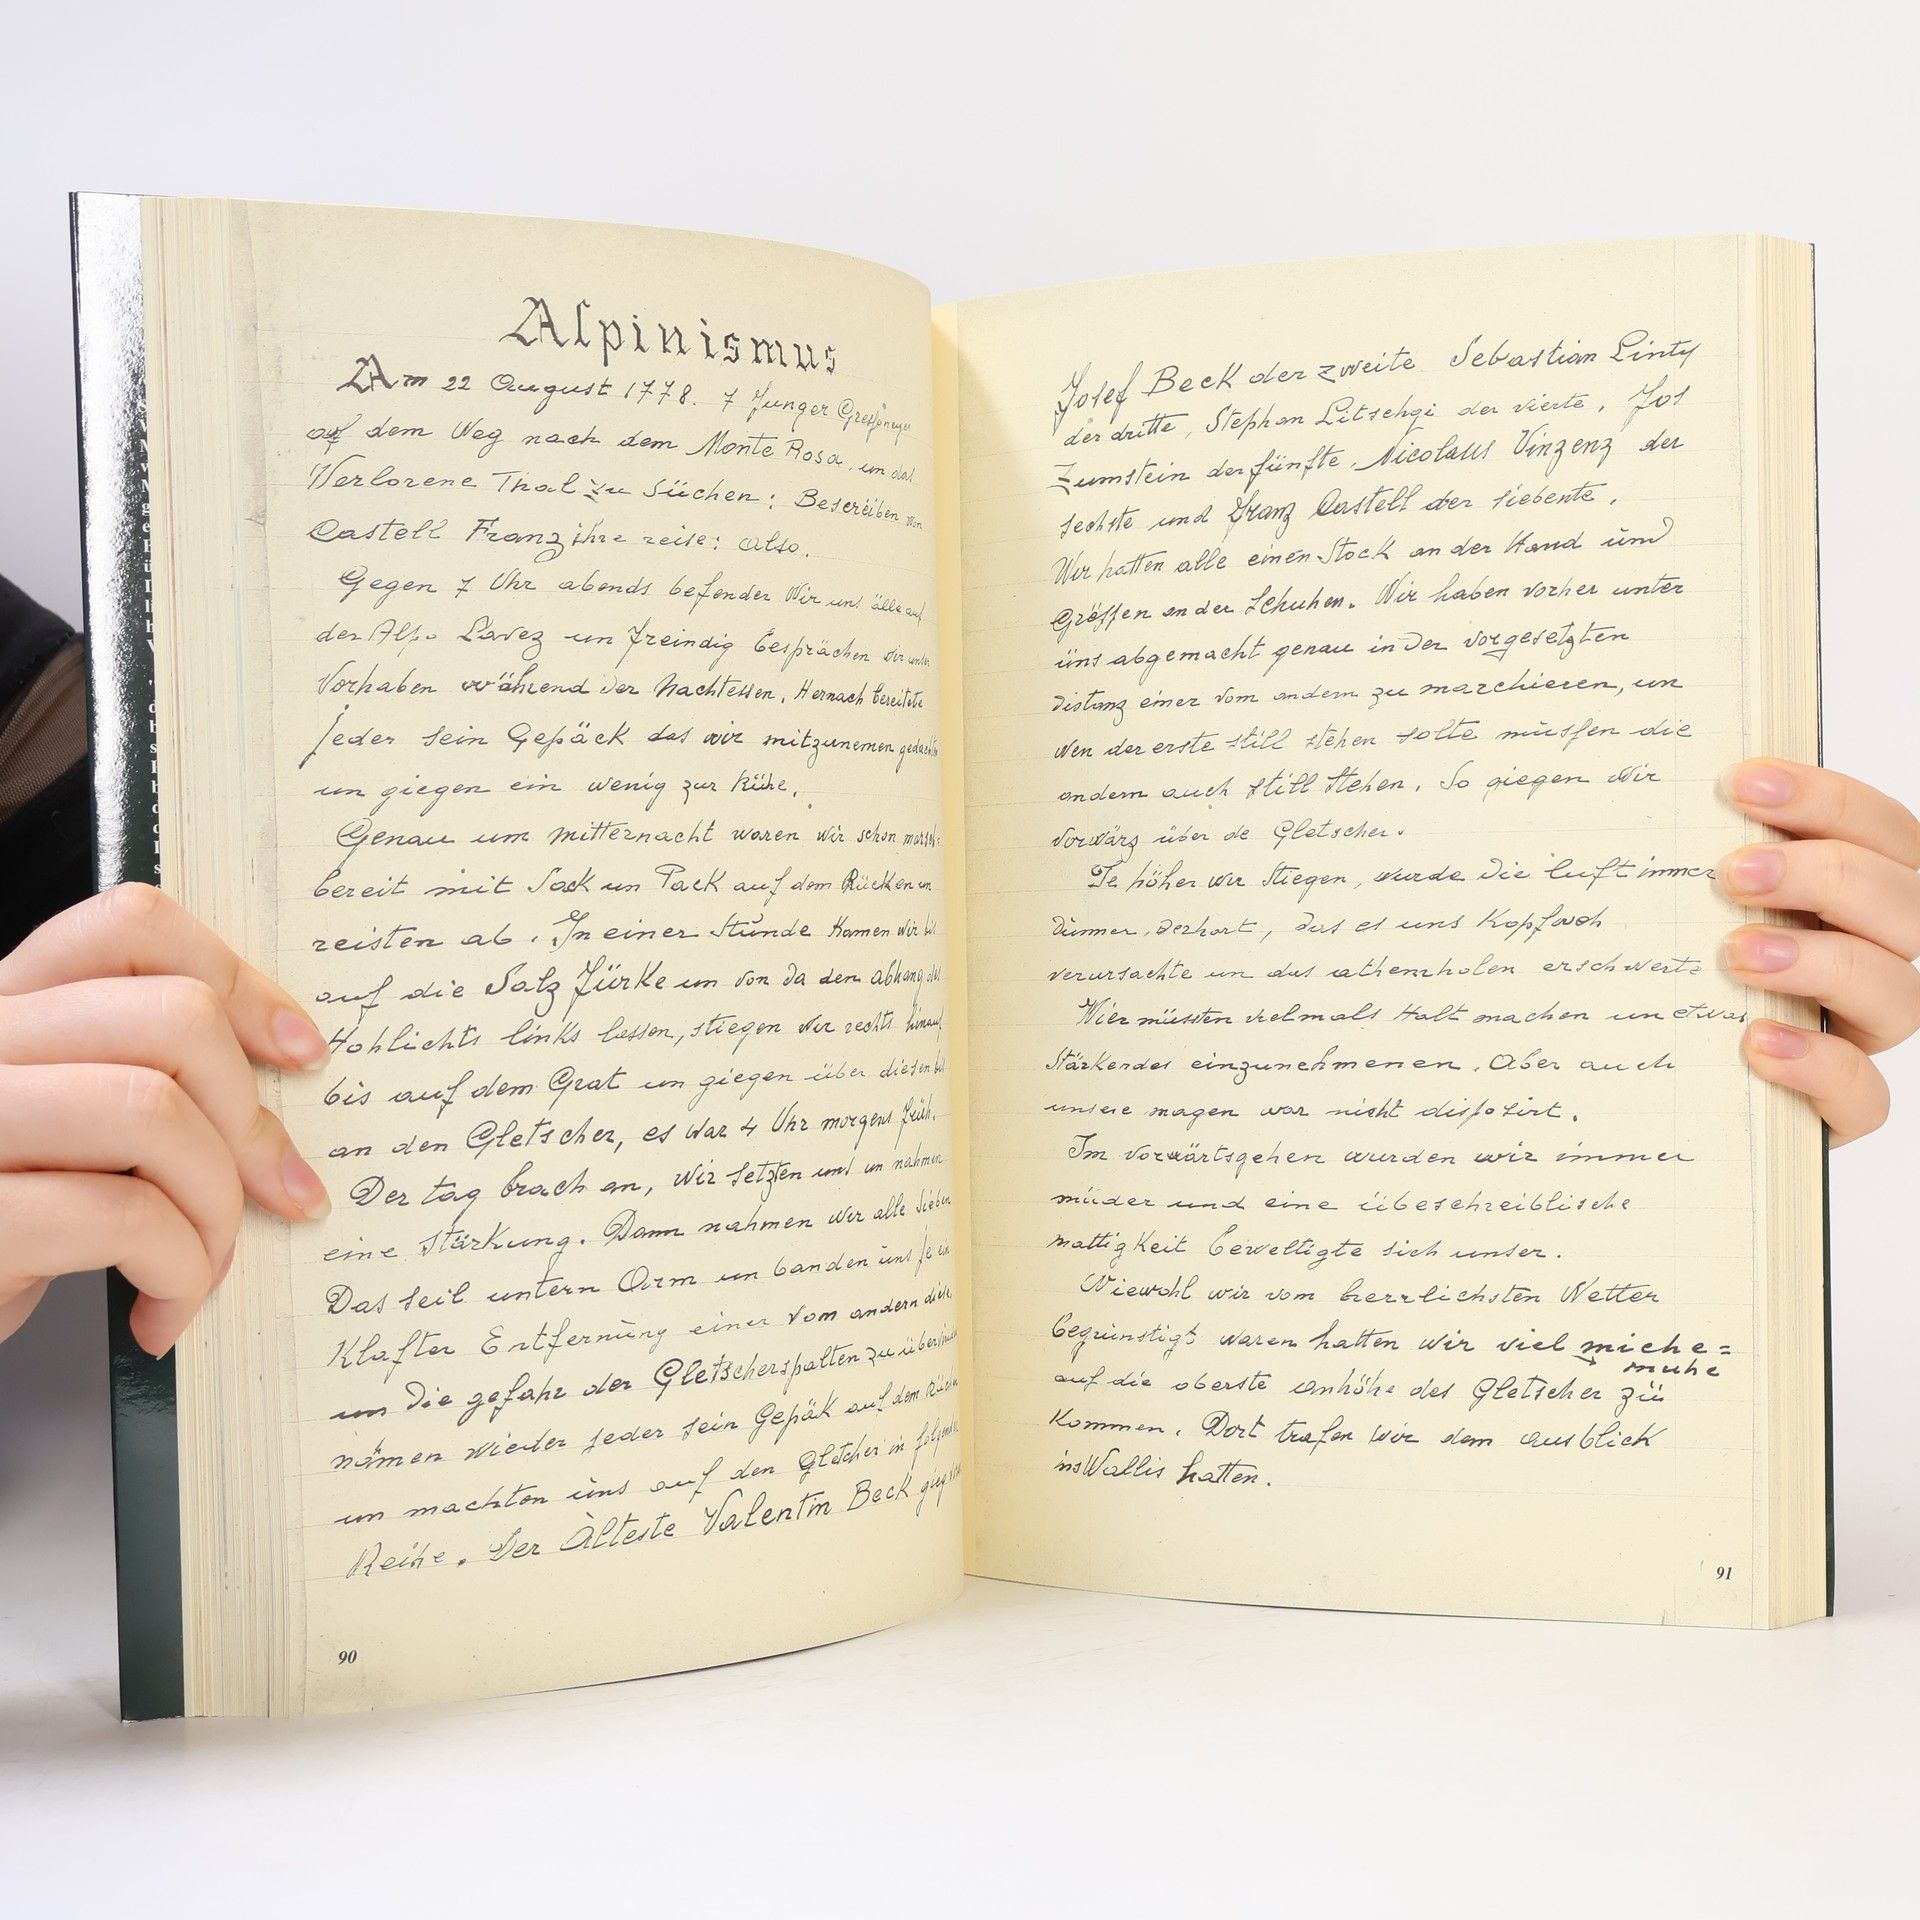 Alpinismus
Am 22 August 1778. 7 Junger Gressoneyer
auf dem Weg nach dem Monte Rosa, um das
Verlorene Thal zu Süchen: Bescreiben von
Castell Franz ihre reise: also.
Gegen 7 Uhr abends befenden Wir uns älle auf
der Alp. Lavez un freindig Gesprächen wir unser
Vorhaben während der Nachtessen. Hernach bereitete
Jeder sein Gepäck das wir mitzunemen gedachten
un giegen ein wenig zur Rühe.
Genau um mitternacht waren wir schon marsch=
bereit mit Sack un Pack auf dem Rücken un
reisten ab. In einer Stünde Kamen wir bis
auf die Salz Fürke un von da den abhang des
Hohlichts links lassen, stiegen wir rechts hinauf
bis auf dem Grat un giegen über diesen bis
an den Gletscher, es war 4 Uhr morgens früh.
Der tag brach an, wir setzten uns un nahmen
eine Stärkung. Dann nahmen wir alle Sieben
Das seil untern Arm un banden üns je ein
Klafter Entfernüng einer vom andern
um Die gefahr der Gletscherspalten zu
nämen wieder jeder sein Gepäk auf dem Rücken
un machten üns auf den Gletcher in folgender
Reihe. Der Älteste Valentin Beck gieg
90
Josef Beck der zweite Sebastian Linty
der dritte, Stephan Litschgi der vierte, Jos
Zumstein der fünfte, Nicolaus Vinzenz der
sechste und Franz Castell der siebente.
Wir hatten alle einen Stock an der Hand ünd
Grössen an der Schuhen. Wir haben vorher unter
üns abgemacht genau in der vorgesetzten
distanz einer vom andern zu marchieren, un
wen der erste still stehen solte müssen die
andern auch still stehen. So giegen Wir
vorwärz über de Gletscher.
Je höher wir stiegen, wurde die luft immer
dünner, derhart, das es uns Kopfweh
verursachte un das athemholen erschwerte
Wier müssten vielmals Halt machen un etwas
Stärkendes einzunehmenen. Aber auch
unsere magen war nicht disposirt.
Im vorwärtsgehen wurden wir immer
müder und eine übeschreiblische
mattigkeit beweltigte sich unser.
Wiewohl wir vom herrlichsten Wetter
begünstigt waren hatten wir viel miche=
muhe
auf die oberste anhöhe des Gletscher zü
Kommen. Dort trafen wir dem ausblick
ins Wallis hatten.
91